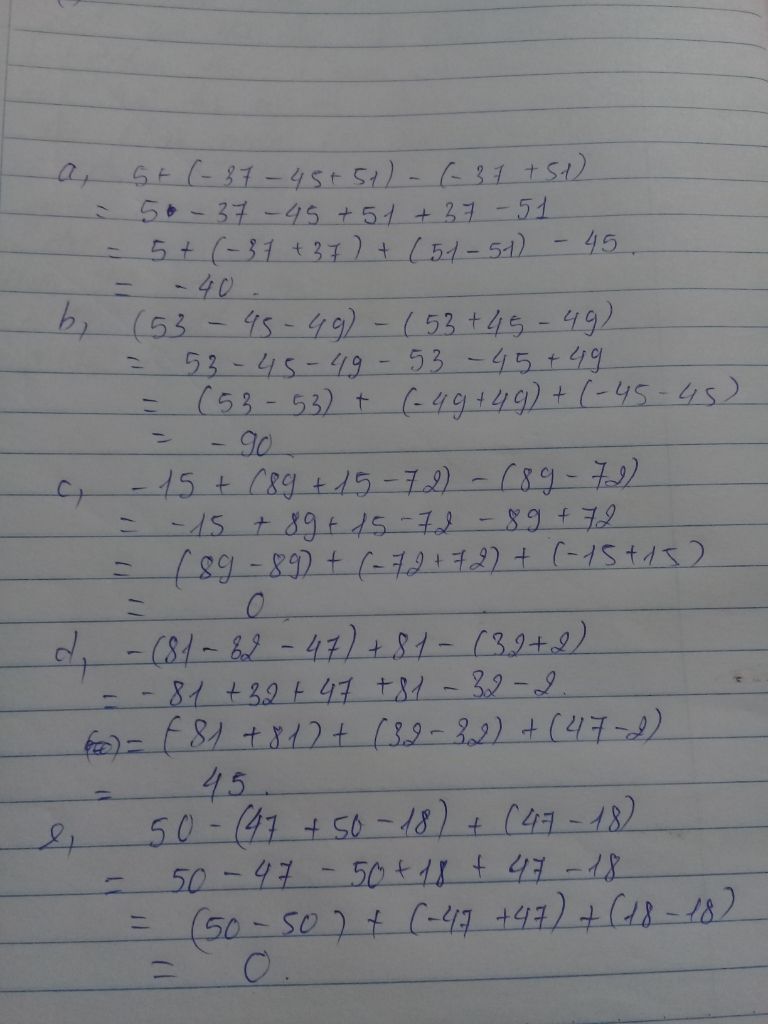 a, 5+ (-37 - 45 + 51) - (-37 + 51)
= 5 - 37 - 45 + 51 + 37 - 51
= 5 + (-37 + 37) + (51 - 51) - 45.
= -40.
b, (53 - 45 - 49) - (53 + 45 - 49)
= 53 - 45 - 49 - 53 - 45 + 49
= (53 - 53) + (-49 + 49) + (-45 - 45)
= -90.
c, -15 + (89 + 15 - 72) - (89 - 72)
= -15 + 89 + 15 - 72 - 89 + 72
= (89 - 89) + (-72 + 72) + (-15 + 15)
= 0
d, -(81 - 32 - 47) + 81 - (32 + 2)
= -81 + 32 + 47 + 81 - 32 - 2.
= (-81 + 81) + (32 - 32) + (47 - 2)
= 45.
e, 50 - (47 + 50 - 18) + (47 - 18)
= 50 - 47 - 50 + 18 + 47 - 18
= (50 - 50) + (-47 + 47) + (18 - 18)
= 0.